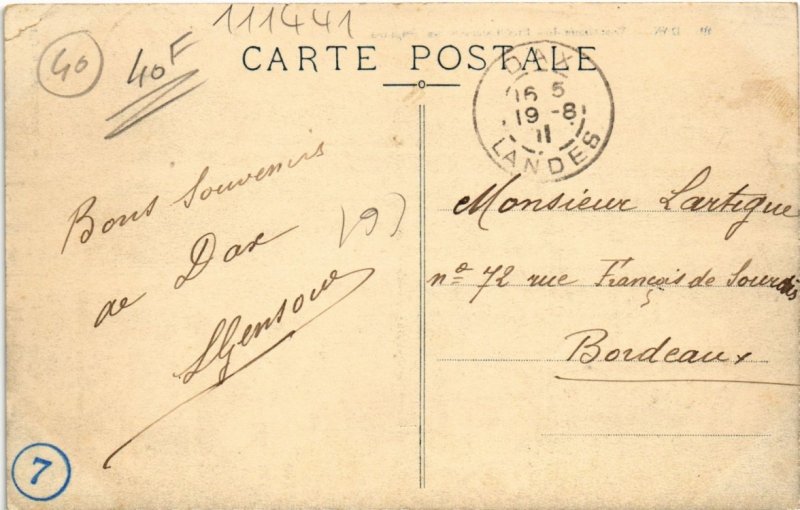 111441
40
40F
CARTE POSTALE
DAX
16 5
19 -8
11
LANDES
Bons Souvenirs
de Dax
(9)
Monsieur Lartigue
n° 72 rue François de Sourdis
Bordeaux
7